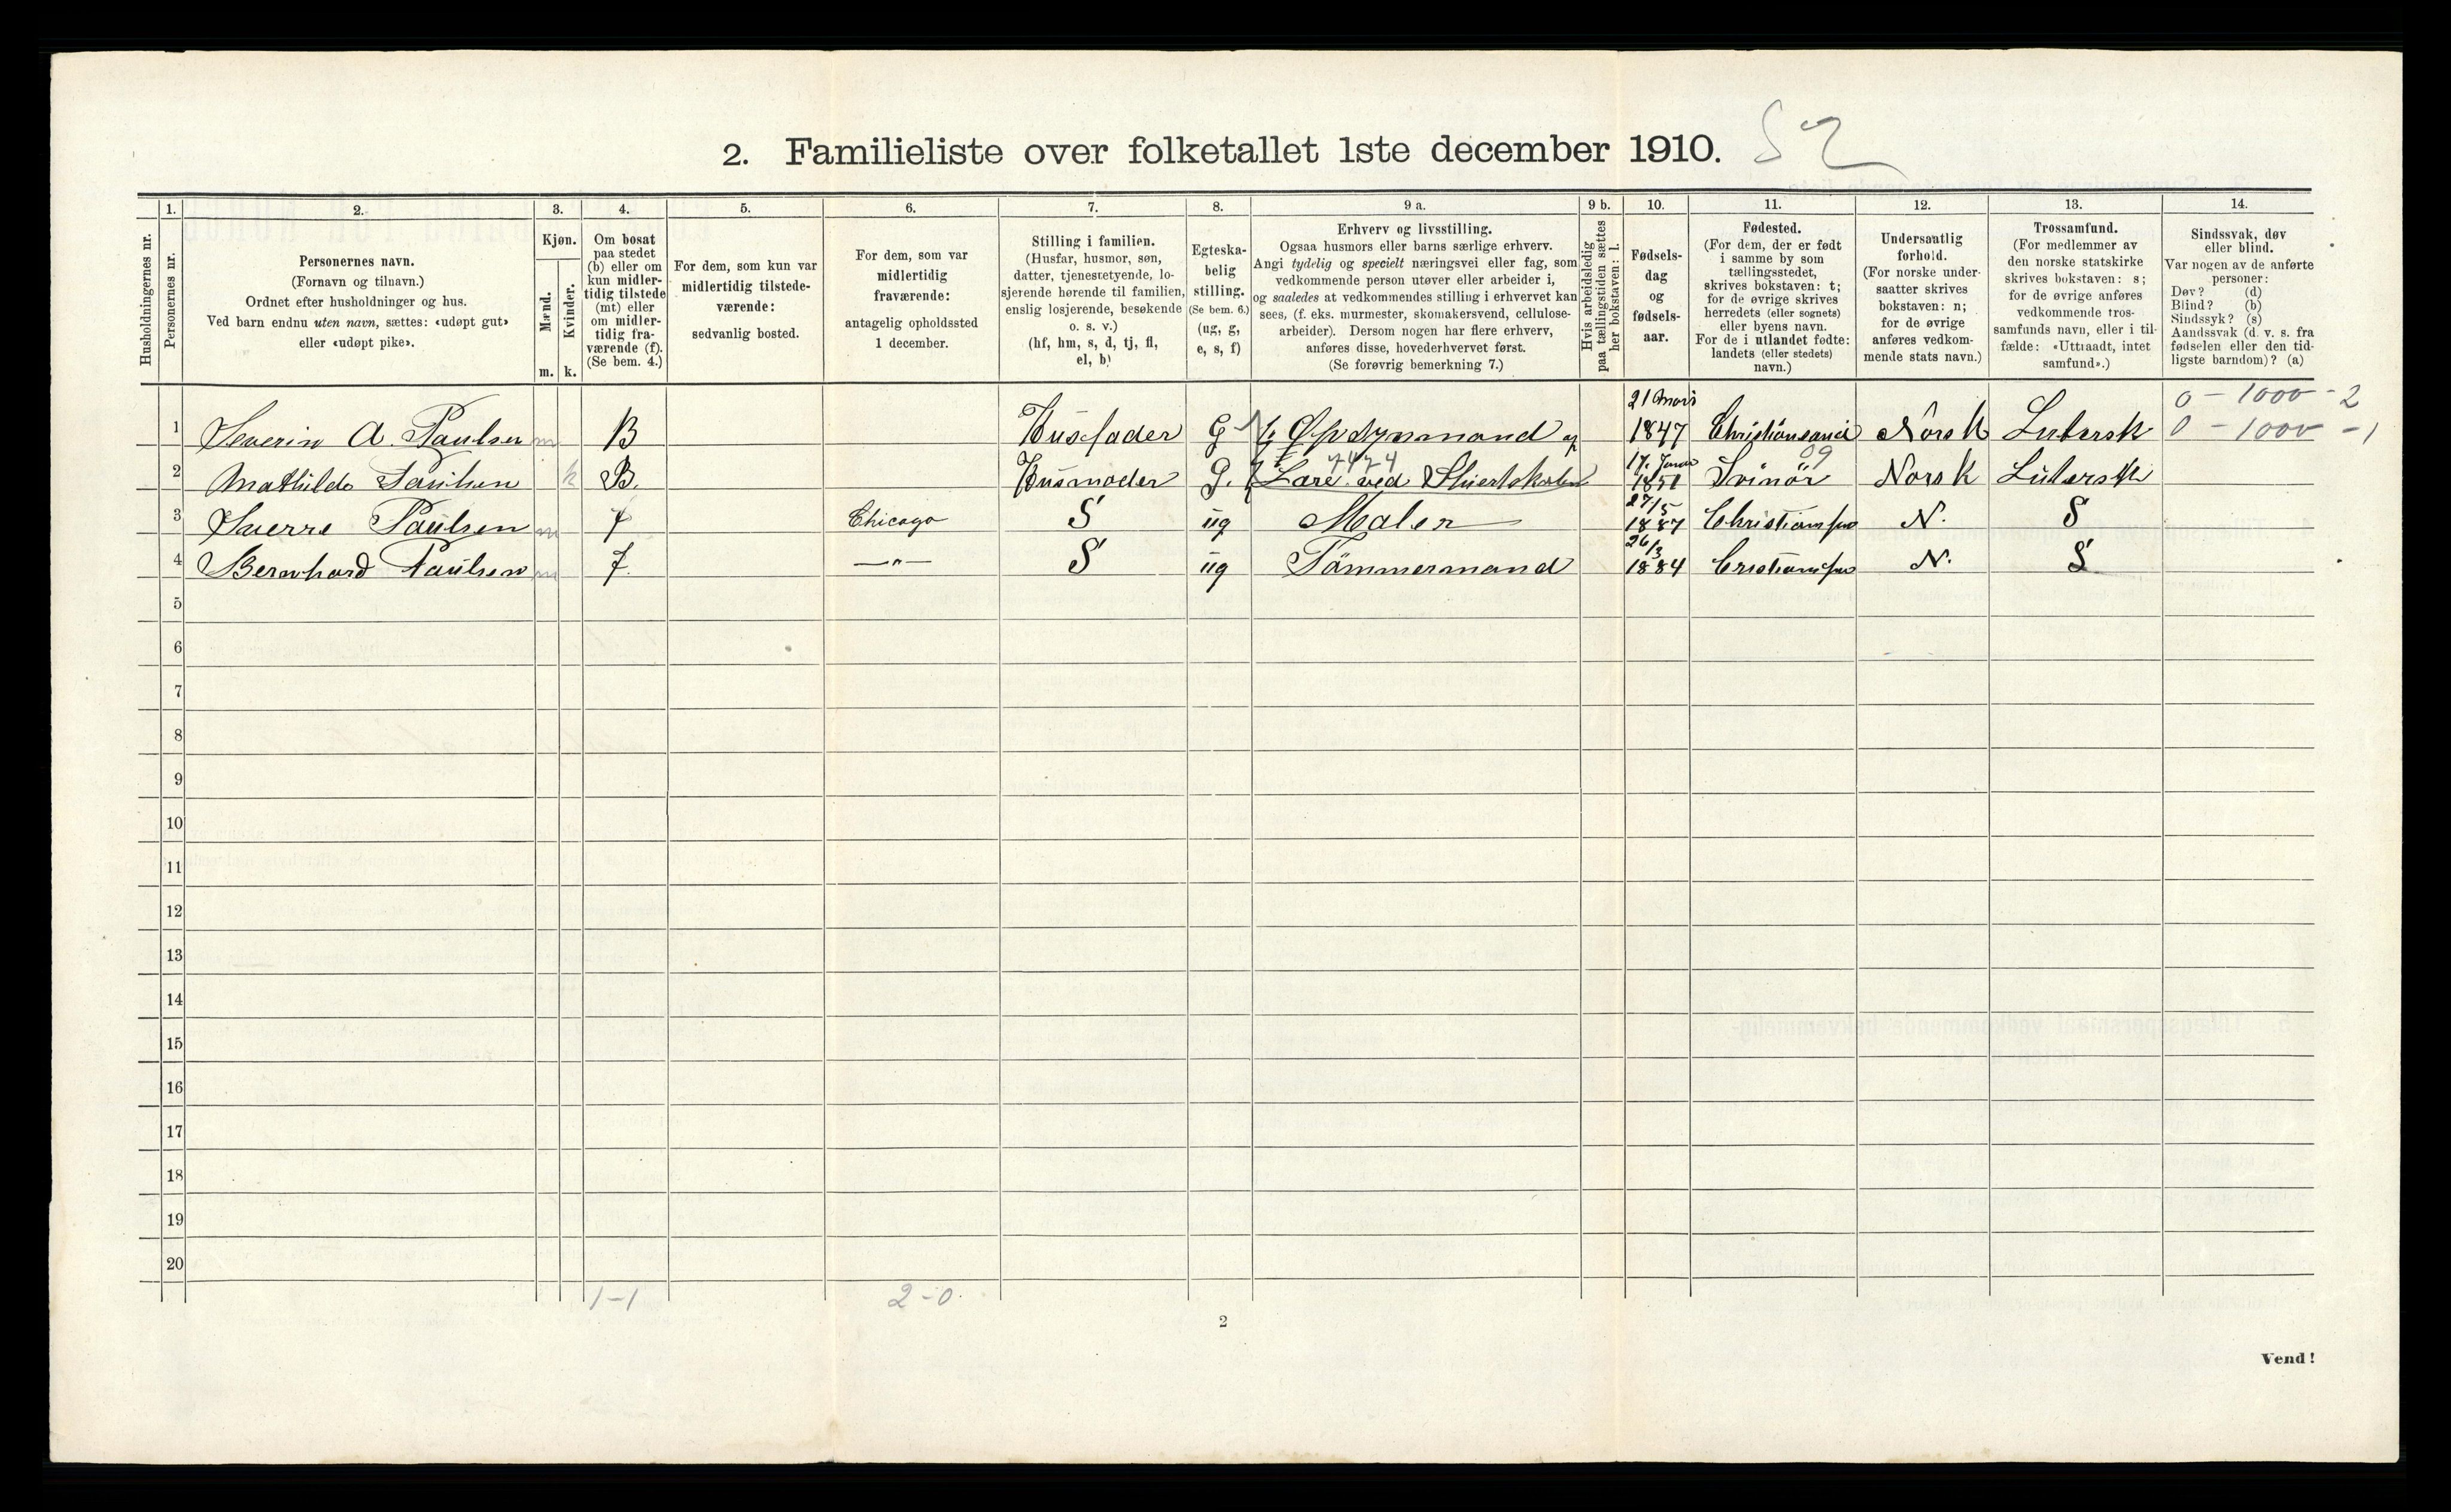 2. Familieliste over folketallet 1ste december 1910. 52
Husholdningernes nr.
1.
Personernes nr.
2.
Personernes navn.
(Fornavn og tilnavn.)
Ordnet efter husholdninger og hus.
Ved barn endnu uten navn, sættes: «udøpt gut»
eller «udøpt pike».
3.
Kjøn.
Mænd.
Kvinder.
m. k.
4.
Om bosat
paa stedet
(b) eller om
kun midler-
tidig tilstede
(mt) eller
om midler-
tidig fra-
værende (f).
(Se bem. 4.)
5.
For dem, som kun var
midlertidig tilstede-
værende:
sedvanlig bosted.
6.
For dem, som var
midlertidig
fraværende:
antagelig opholdssted
1 december.
7.
Stilling i familien.
(Husfar, husmor, søn,
datter, tjenestetyende, lo-
sjerende hørende til familien,
enslig losjerende, besøkende
o. s. v.)
(hf, hm, s, d, tj, fl,
el, b)
8.
Egteska-
belig
stilling.
(Se bem. 6.)
(ug, g,
e, s, f)
9 a.
Erhverv og livsstilling.
Ogsaa husmors eller barns særlige erhverv.
Angi tydelig og specielt næringsvei eller fag, som
vedkommende person utøver eller arbeider i,
og saaledes at vedkommendes stilling i erhvervet kan
sees, (f. eks. murmester, skomakersvend, cellulose-
arbeider). Dersom nogen har flere erhverv,
anføres disse, hovederhvervet først.
(Se forøvrig bemerkning 7.)
9 b.
Hvis arbeidsledig
paa tællingstiden sættes
her bokstaven: l.
10.
Fødsels-
dag
og
fødsels-
aar.
11.
Fødested.
(For dem, der er født
i samme by som
tællingsstedet,
skrives bokstaven: t;
for de øvrige skrives
herredets (eller sognets)
eller byens navn.
For de i utlandet fødte:
landets (eller stedets)
navn.)
12.
Undersaatlig
forhold.
(For norske under-
saatter skrives
bokstaven: n;
for de øvrige
anføres vedkom-
mende stats navn.)
13.
Trossamfund.
(For medlemmer av
den norske statskirke
skrives bokstaven: s;
for de øvrige anføres
vedkommende tros-
samfunds navn, eller i til-
fælde: «Uttraadt, intet
samfund».)
14.
Sindssvak, døv
eller blind.
Var nogen av de anførte
personer:
Døv? (d)
Blind? (b)
Sindssyk? (s)
Aandssvak (d. v. s. fra
fødselen eller den tid-
ligste barndom)? (a)
0 - 1000 - 2
1 Severin A. Paulsen m B Husfader G Opsynmand og 21 Mars 1847 Christiansand Norsk Lutersk 0 - 1000 - 1
7474 09
2 Mathilde Paulsen k B. Husmoder G. Lære ved 17. Januar 1851 Svinör Norsk Lutersk
3 Sverre Paulsen m f Chicago S ug Maler 27/5 1887 N. S
4 Bernhard Paulsen m f. —"— S ug Tömmermand 26/3 1884 N. S
5
6
7
8
9
10
11
12
13
14
15
16
17
18
19
20
1-1 2-0.
2
Vend!